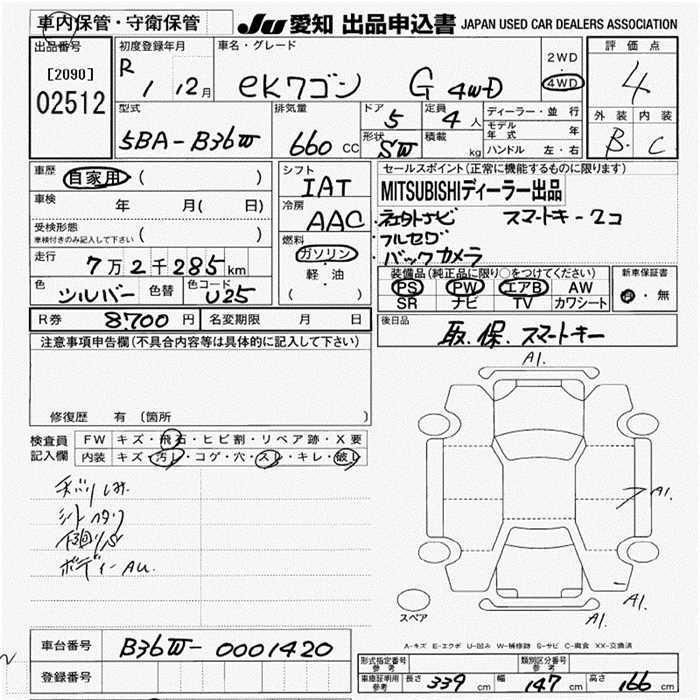 車内保管・守衛保管
JU 愛知 出品申込書 JAPAN USED CAR DEALERS ASSOCIATION
出品番号
[2090]
02512
初度登録年月
R 1 12月
車名・グレード
eKワゴン G 4WD
2WD
4WD
評価点
4
外装 内装
B C
型式
5BA-B36W
排気量
660 CC
ドア
5
形状
SW
定員
4 人
積載
kg
ディーラー・並行
モデル年式 年
ハンドル 左・右
車歴 自家用 ( )
車検 年 月( 日)
受検形態
車検付きのみ記入して下さい ( )
走行 7万2千285km
色 シルバー 色替 色コード U25
シフト
IAT
冷房
AAC
燃料
ガソリン
・
軽・油
( )
セールスポイント(正常に機能するものに限ります)
MITSUBISHIディーラー出品
スマートキー2コ
・フルセグ
・バックカメラ
装備品(純正品に限り○をつけてください)
PS PW エアB AW
SR ナビ TV カワシート
新車保証書
有・無
R券 8,700 円 名変期限 月 日
後日品
取.保.スマートキー
注意事項申告欄(不具合内容等は具体的に記入して下さい)
修復歴 有 〔箇所
検査員
記入欄
FW キズ・飛石・ヒビ割・リペア跡・X要
内装 キズ・汚レ・コゲ・穴・スレ・キレ・破レ
シートヘタリ
ボディーAU.
A1.
A1.
A1.
A1.
スペア
A-キズ E-エクボ U-凹み W-補修跡 S-サビ C-腐食 XX-交換済
車台番号 B36W-0001420
登録番号
形式指定番号
参考
類別区分番号
参考
車庫証明用
参考
長さ 339 cm 幅 147 cm 高さ 166 cm